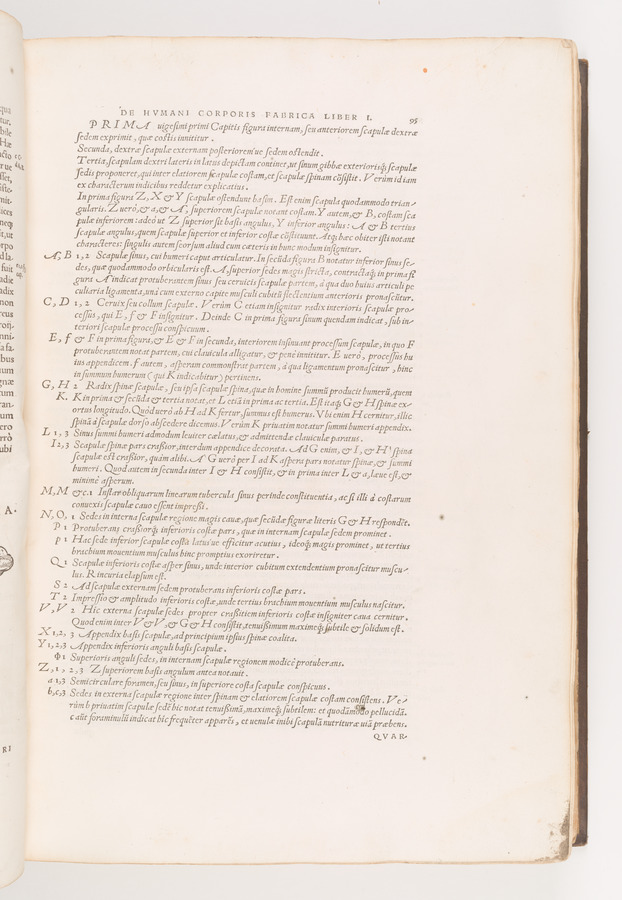 DE HVMANI CORPORIS FABRICA LIBER I. 95
PRIMA uigesimi primi Capitis figura internam, seu anteriorem scapulæ dextræ
sedem exprimit, quæ costis innititur.
Secunda, dextræ scapulæ externam posterioremue sedem ostendit.
Tertia, scapulam dextri lateris in latus depictam continet, ut sinum gibbæ exteriorisq́; scapulæ
sedis proponeret, qui inter elatiorem scapulæ costam, et scapulæ spinam cõsistit. Verùm id iam
ex characterum indicibus reddetur explicatius.
In prima figura Z, X & Y scapulæ ostendunt basin. Est enim scapula quodammodo trian-
gularis. Z uerò, & a, & A, superiorem scapulæ notant costam. Y autem, & B, costam sca
pulæ inferiorem: adeò ut Z superior sit basis angulus, Y inferior angulus: A & B tertius
scapulæ angulus, quem scapulæ superior et inferior costæ cõstituunt. Atq́; hæc obiter isti notant
characteres: singulis autem seorsum aliud cum cæteris in hunc modum insignitur.
A, B 1, 2 Scapulæ sinus, cui humeri caput articulatur. In secũda figura B notatur inferior sinus se-
des, quæ quodammodo orbicularis est. A, superior sedes magis stricta, contractaq́; in prima fi
gura A indicat protuberantem sinus seu ceruicis scapulæ partem, à qua duo huius articuli pe
culiaria ligamenta, unà cum externo capite musculi cubitũ flectentium anterioris pronascũtur.
C, D 1, 2 Ceruix seu collum scapulæ. Verùm C etiam insignitur radix interioris scapulæ pro-
cessus, qui E, f & F insignitur. Deinde C in prima figura sinum quendam indicat, sub in-
teriori scapulæ processu conspicuum.
E, f & F in prima figura, & E & F in secunda, interiorem insinuant processum scapulæ, in quo F
protuberantem notat partem, cui clauicula alligatur, & penè innititur. E uerò, processus hu
ius appendicem. f autem, asperam commonstrat partem, à qua ligamentum pronascitur, hinc
in summum humerum (qui K indicabitur) pertinens.
G, H 2 Radix spinæ scapulæ, seu ipsa scapulæ spina, quæ in homine summũ producit humerũ, quem
K. K in prima & secũda & tertia notat, et L etiã in prima ac tertia. Est itaq́; G & H spinæ ex-
ortus longitudo. Quòd uerò ab H ad K fertur, summus est humerus. Vbi enim H cernitur, illic
spinã à scapulæ dorso abscedere dicemus. Verùm K priuatim notatur summi humeri appendix.
L 1, 3 Sinus summi humeri admodum leuiter cælatus, & admittendæ clauiculæ paratus.
I 2, 3 Scapulæ spinæ pars crassior, interdum appendice decorata. Ad G enim, & I, & H spina
scapulæ est crassior, quàm alibi. A G uerò per I ad K aspera pars notatur spinæ, & summi
humeri. Quod autem in secunda inter I & H consistit, & in prima inter L & a, læue est, &
minimè asperum.
M, M &c. 1 Instar obliquarum linearum tubercula sinus perinde constituentia, ac si illi à costarum
conuexis scapulæ cauo essent impressi.
N, O, 1 Sedes in interna scapulæ regione magis cauæ, quæ secũdæ figuræ literis G & H respondẽt.
P 1 Protuberans crassiorq́; inferioris costæ pars, quæ in internam scapulæ sedem prominet.
p 1 Hac sede inferior scapulæ costa latusue efficitur acutius, ideoq́; magis prominet, ut tertius
brachium mouentium musculus hinc promptius exoriretur.
Q 1 Scapulæ inferioris costæ asper sinus, unde interior cubitum extendentium pronascitur muscu-
lus. R incuria elapsum est.
S 2 Ad scapulæ externam sedem protuberans inferioris costæ pars.
T 2 Impressio & amplitudo inferioris costæ, unde tertius brachium mouentium musculus nascitur.
V, V 2 Hic externa scapulæ sedes propter crassitiem inferioris costæ insigniter caua cernitur.
Quod enim inter V & V, & G & H consistit, tenuissimum maximeq́; subtile & solidum est.
X 1, 2, 3 Appendix basis scapulæ, ad principium ipsius spinæ coalita.
Y 1, 2, 3 Appendix inferioris anguli basis scapulæ.
Φ 1 Superioris anguli sedes, in internam scapulæ regionem modicè protuberans.
Z, 1, 2, 3 Z superiorem basis angulum antea notauit.
a 1, 3 Semicirculare foramen, seu sinus, in superiore costa scapulæ conspicuus.
b, c, 3 Sedes in externa scapulæ regione inter spinam & elatiorem scapulæ costam consistens. Ve-
rùm b priuatim scapulæ sedẽ hìc notat tenuissimã, maximeq́; subtilem: et quodãmodo pellucidã.
c aũt foraminulũ indicat hìc frequẽter apparẽs, et uenulæ inibi scapulã nutrituræ uiã præbens.
QVAR-